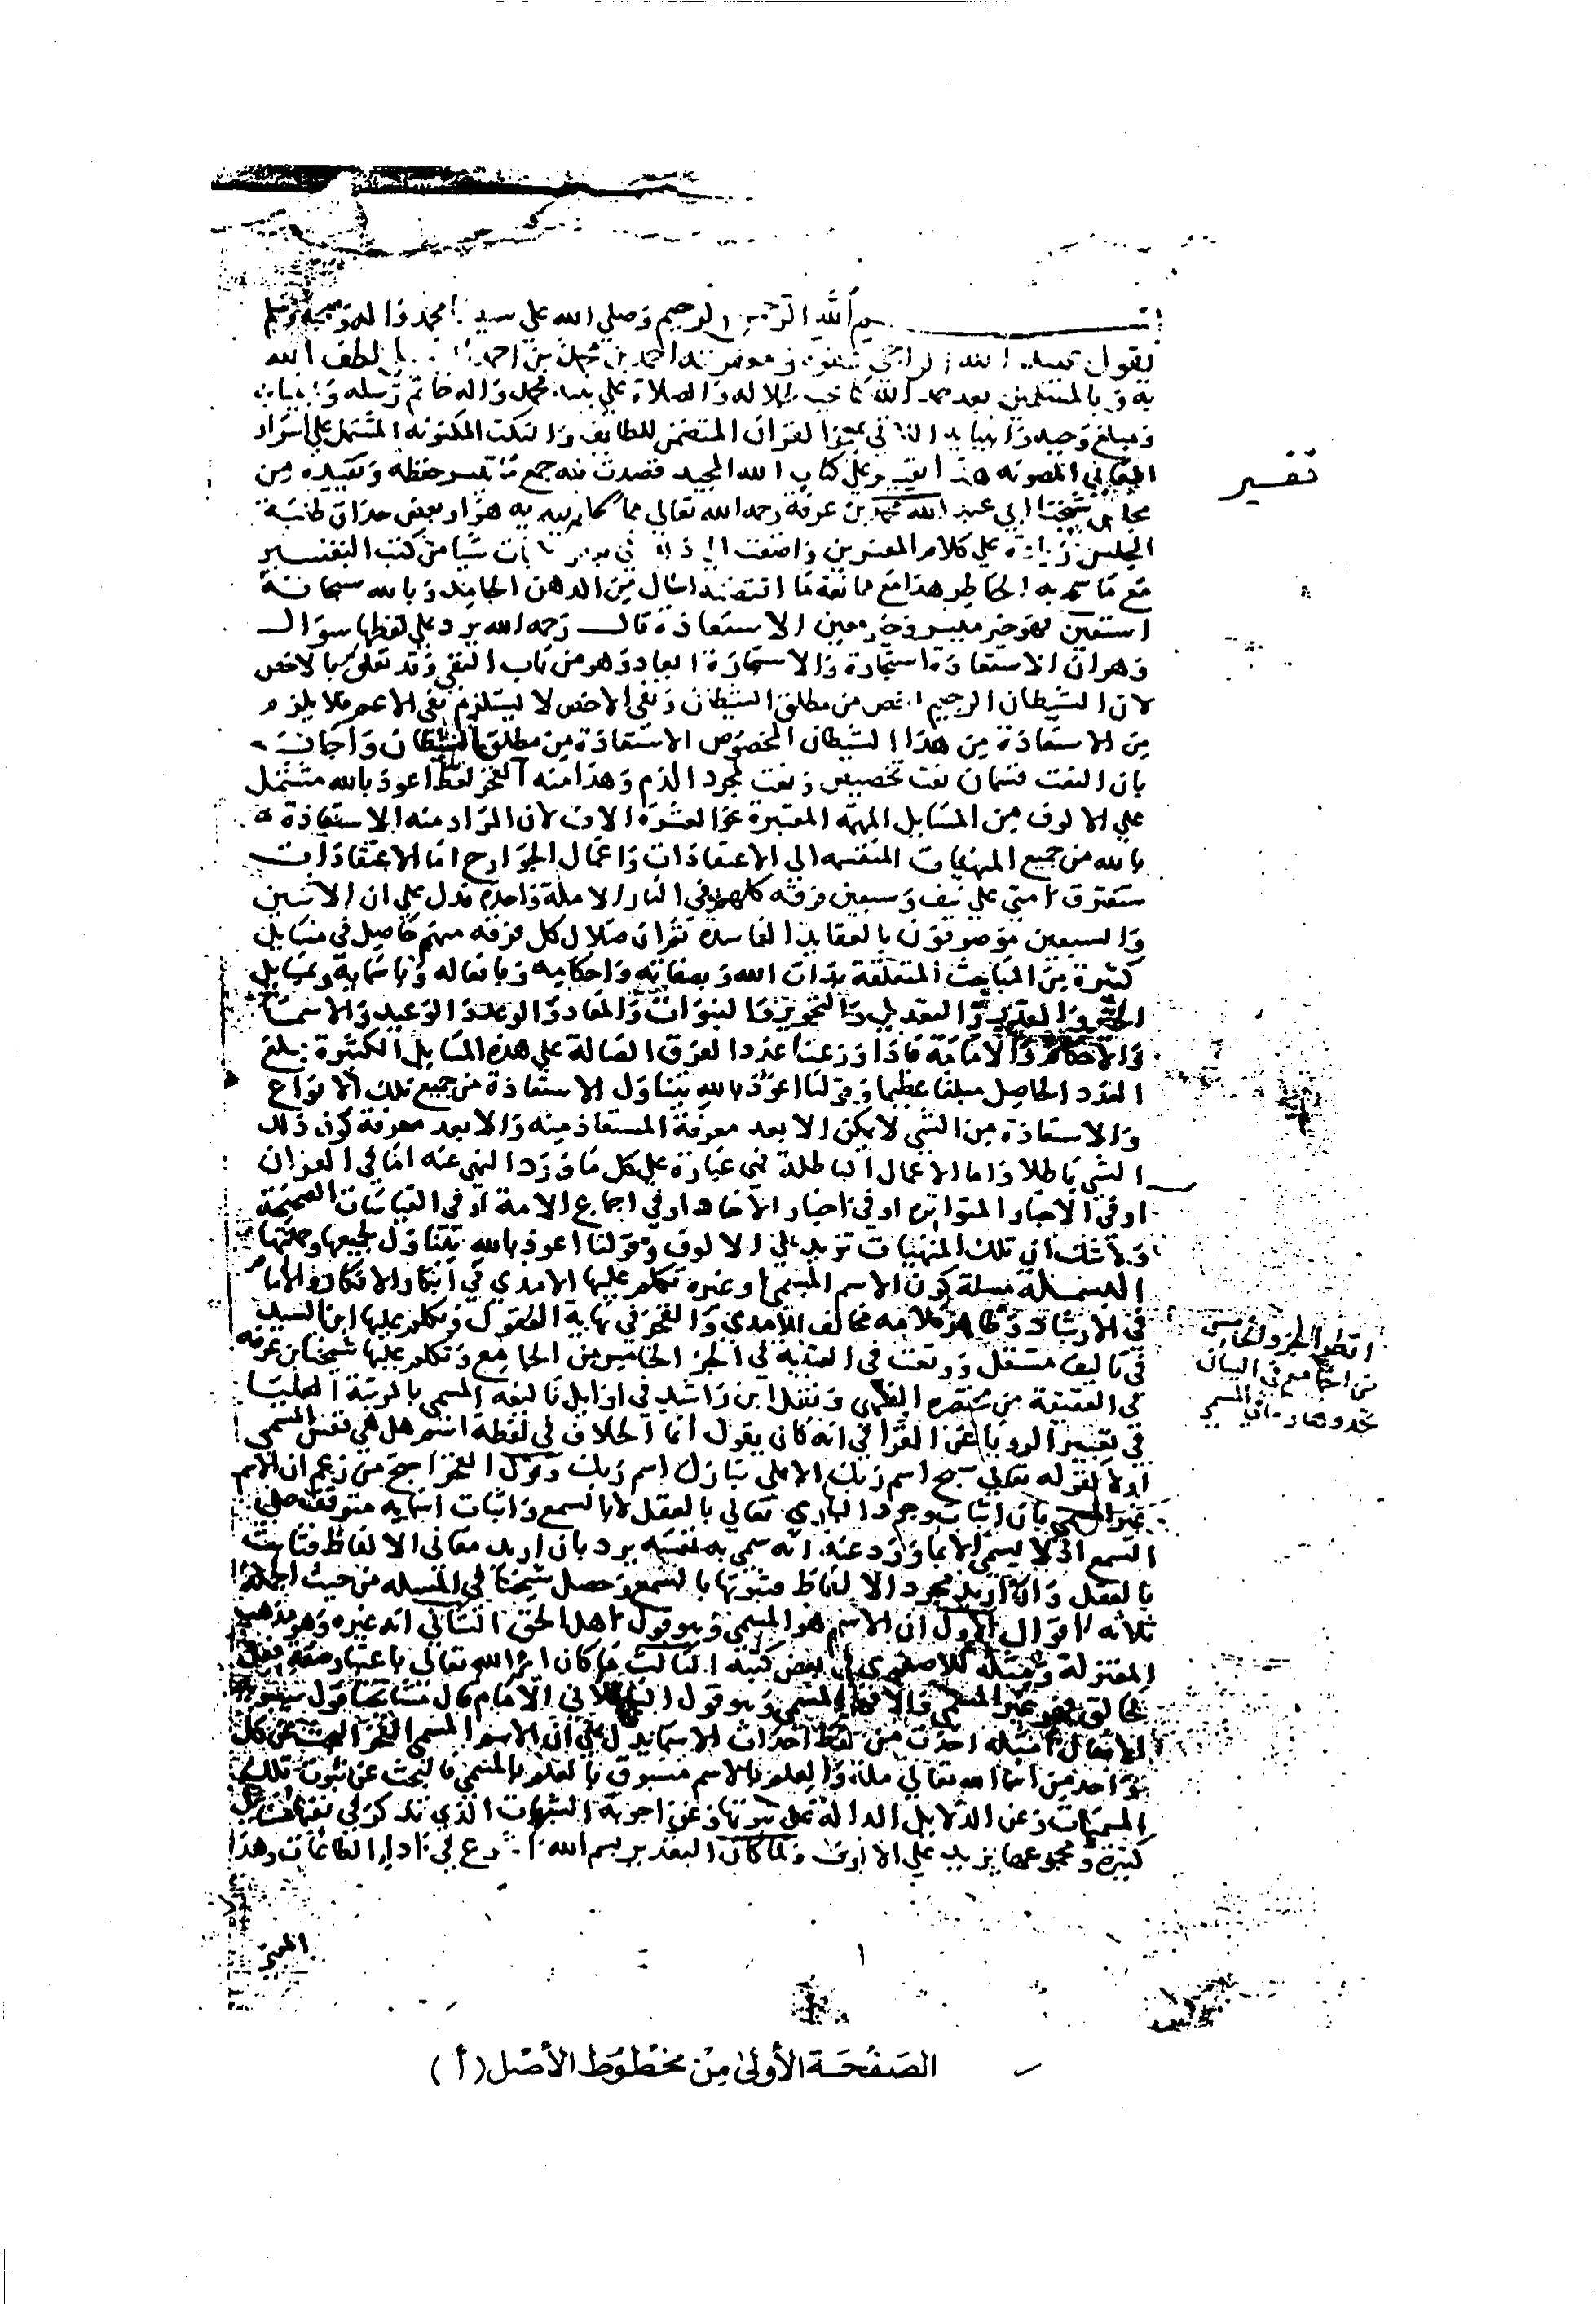 بسم الله الرحمن الرحيم وصلي الله علي سيدنا محمد واله وصحبه وسلم
يقول عبيد الله الراجي عفوه احمد بن محمد بن احمد لطف الله
به وبالمسلمين بعد حمد الله كما يجب لجلاله والصلاة علي نبيه محمد واله خاتم رسله وانبيايه
ومبلغ وحيه وانبايه القران المتضمن للطايف والنكت المكنونه المشتمل علي اسرار
المعاني المصونه هذا تقييد علي كتاب الله المجيد قصدت فيه جمع ما تيسر حفظه وتقييده من
تفسير
مجلس شيخنا ابي عبد الله محمد بن عرفة رحمه الله تعالي مما كان يبديه هو او بعض حذاق طلبة
المجلس زيادة علي كلام المفسرين واضفت الي ذلك في بعض الايات شيا من كتب التفسير
مع ما سمح به الخاطر هذا مع ممانعة ما اقتضته الحال من الذهن الجامد وبالله سبحانه
استعين فهو خير ميسر وخير معين الاستعاذة قال رحمه الله يرد علي لفظها سوال
وهو ان الاستعاذة استجارة والاستجارة ابعاد وهو من باب النفي وقد تعلق بالاخص
لان الشيطان الرجيم اخص من مطلق الشيطان ونفي الاخص لا يستلزم نفي الاعم فلا يلزم
من الاستعاذة من هذا الشيطان المخصوص الاستعاذة من مطلق الشيطان واجاب
بان النعت قسمان نعت تخصيص ونعت لمجرد الذم وهذا منه الفخر لفظ اعوذ بالله مشتمل
علي الالوف من المسايل المهمة المعتبرة نحو العشرة الاف لان المراد منه الاستعاذة
بالله من جميع المنهيات المنقسمه الي الاعتقادات واعمال الجوارح اما الاعتقادات
ستفترق امتي علي نيف وسبعين فرقه كلهم في النار الا ملة واحدة فدل علي ان الاثنين
والسبعين موصوفون بالعقايد الفاسدة ثم ان ضلال كل فرقه منهم حاصل في مسايل
كثيرة من المباحث المتعلقة بذات الله وبصفاته واحكامه وبافعاله وباسمايه وبمسايل
الجبر والقدر والتعديل والتجويز والنبوات والمعاد والوعد والوعيد والاسما
والاحكام والامامة فاذا وزعنا عدد الفرق الضالة علي هذه المسايل الكثيرة بلغ
العدد الحاصل مبلغا عظيما وقولنا اعوذ بالله يتناول الاستعاذة من جميع تلك الانواع
والاستعاذة من الشي لا يمكن الا بعد معرفة المستعاذ منه والا بعد معرفة كون ذلك
الشي باطلا واما الاعمال الباطلة فهي عبارة علي كل ما ورد النهي عنه اما في القران
او في الاخبار المتواتره او في اخبار الاحاد او في اجماع الامة او في القياسات الصحيحة
ولا شك ان تلك المنهيات تزيد علي الالوف وقولنا اعوذ بالله يتناول لجميعها وجملتها
البسملة مسلة كون الاسم المسمي او غيره تكلم عليها الامدي في ابكار الافكار والامام
في الارشاد وظاهر كلامه مخالف للامدي والفخر في نهاية العقول وتكلم عليها ابن السيد
في تاليف مستقل ووقعت في العتبية في الجزء الخامس من الجامع وتكلم عليها شيخنا ابن عرفه
انظر الجزو الخامس
من الجامع في البيان
في العقيقة من مختصره الفقهي ونقل ابن راشد في اوايل تاليفه المسمي بالمرتبة العليا
في تفسير الرويا عن القرافي انه كان يقول انما الخلاف في لفظة اسم هل هي نفس المسمي
اولا لقوله تعالي سبح اسم ربك الاعلي تبارك اسم ربك وقول الفخر احتج من زعم ان الاسم
غير المسمي بان اثبات وجود الباري تعالي بالعقل لا بالسمع واثبات اسمايه متوقف علي
السمع اذ لا يسمي الا بما ورد عنه انه سمي به نفسه يرد بان اريد معاني الالفاظ فثابت
بالعقل وان اريد مجرد الالفاظ فثبوتها بالسمع وحصل شيخنا في المسله من حيث الجملة
ثلاثه اقوال الاول ان الاسم هو المسمي وهو قول اهل الحق الثاني انه غيره وهو مذهب
المعتزلة ومثله للاصفهري في بعض كتبه الثالث ما كان اسما لله تعالي باعتبار صفة فعل
كخالق فهو غير المسمي والا فهو المسمي وهو قول الباقلاني الامام قال مشايخنا قول سيبويه
الافعال امثلة اخذت من لفظ احداث الاسما يدل علي ان الاسم المسمي الفخر البحث عن كل
واحد من اسما الله تعالي مسلة والعلم بالاسم مسبوق بالعلم بالمسمي فالبحث عن ثبوت تلك
المسميات وعن الدلايل الدالة علي ثبوتها وعن اجوبة الشبهات الذي تذكر في نفيها مسايل
كثيرة ومجموعها يزيد علي الالوف ولما كان التقدير بسم الله اشرع في ادا الطاعات وهذا
المعني
الصفحة الأولى من مخطوط الأصل (أ)